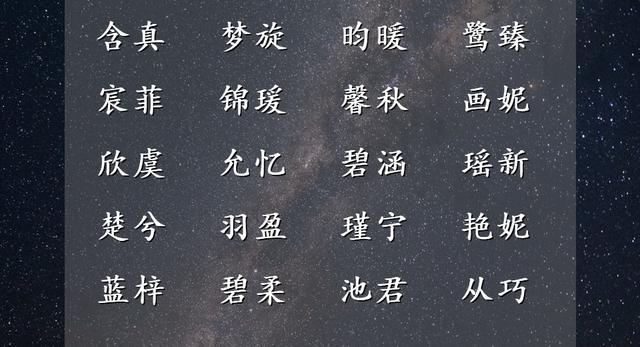 含真 梦旋 昀暖 鹭臻
宸菲 锦瑗 馨秋 画妮
欣虞 允忆 碧涵 瑶新
楚兮 羽盈 瑾宁 艳妮
蓝梓 碧柔 池君 从巧